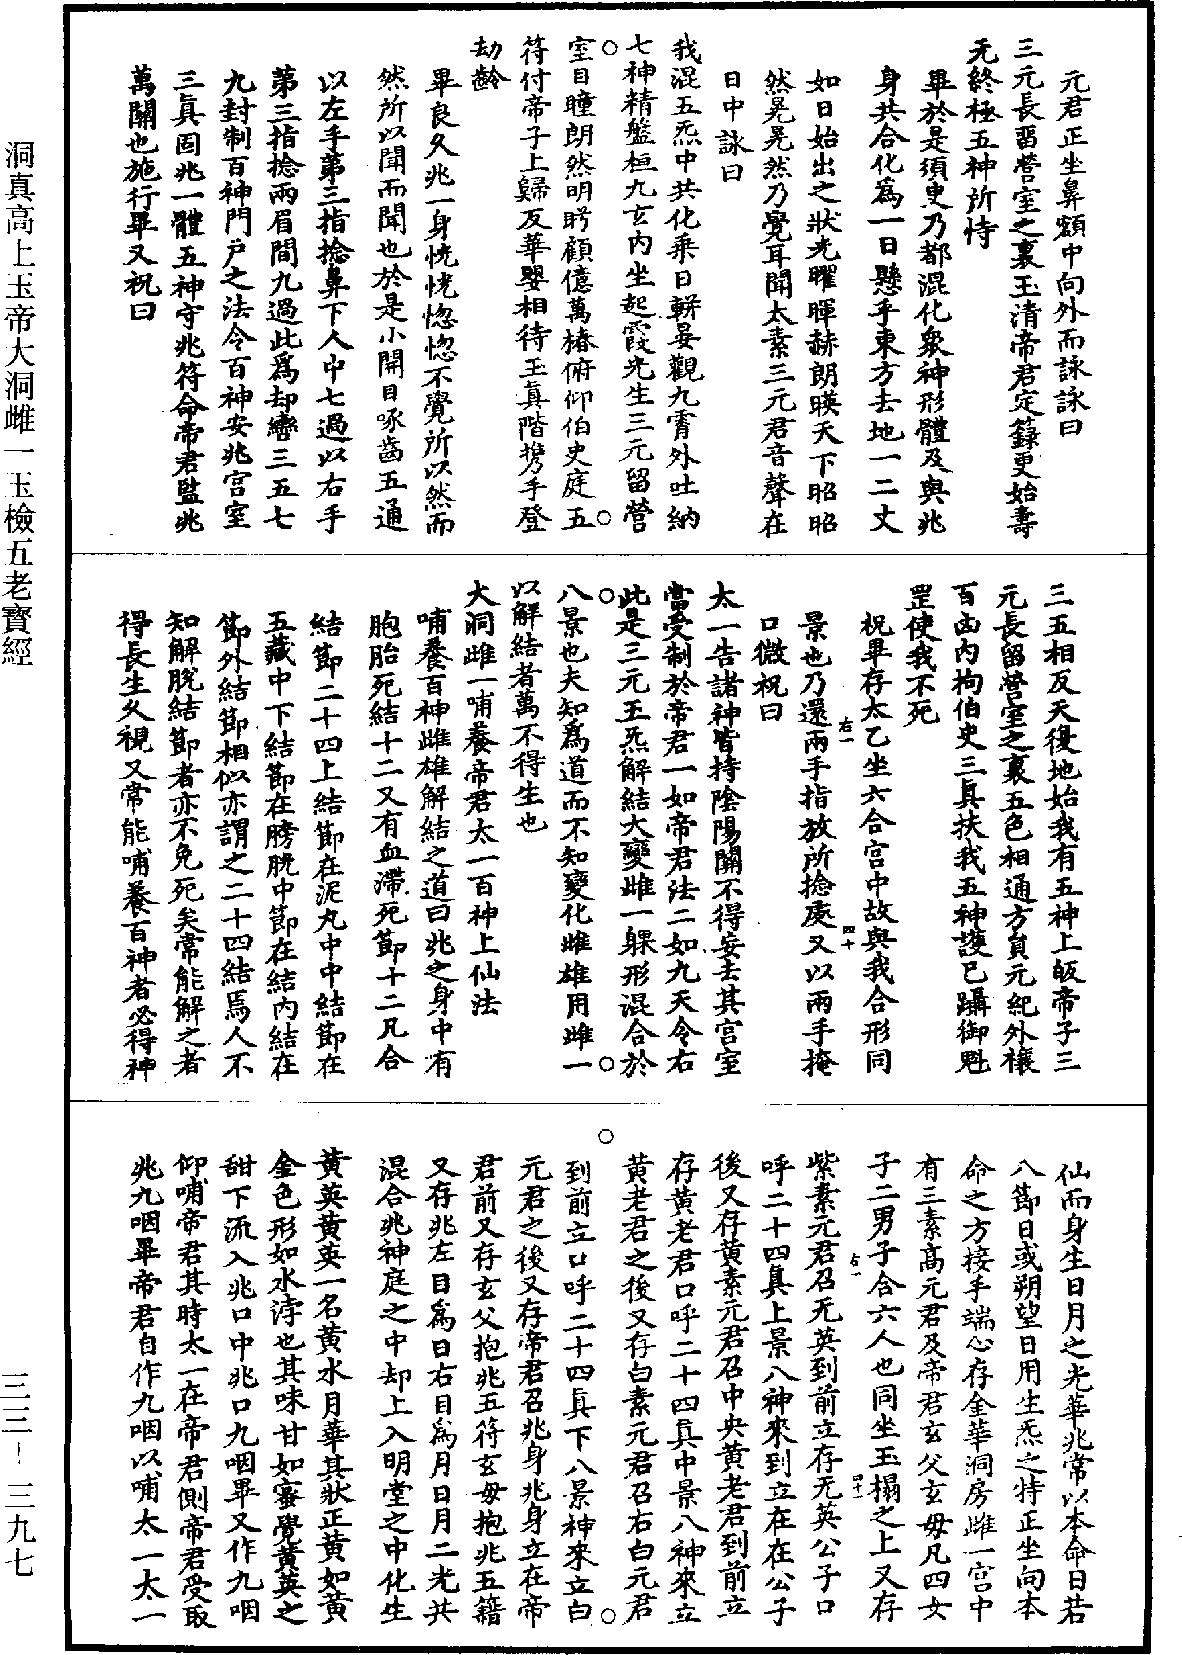 元君正坐鼻頞中向外而詠詠曰
三元長畱營室之裏玉清帝君定籙更始壽
无終極五神所恃
畢於是須臾乃都混化衆神形體及與兆
身共合化爲一日懸乎東方去地一二丈
如日始出之狀光曜暉赫朗暎天下昭昭
然晃晃然乃覺耳聞太素三元君音聲在
日中詠曰
我混五炁中共化乘日軿晏觀九霄外吐納
七神精盤桓九玄內坐起霞光生三元留營
室目瞳朗然明眄顧億萬椿俯仰伯史庭五
符付帝子上歸反華嬰相待玉真階携手登
劫齡
畢良久兆一身恍恍惚惚不覺所以然而
然所以聞而聞也於是小開目啄齒五通
以左手第三指捻鼻下人中七過以右手
第三指捻兩眉間九過此爲却轡三五七
九封制百神門戶之法令百神安兆宮室
三真固兆一體五神守兆符命帝君監兆
萬關也施行畢又祝曰
三五相反天復地始我有五神上皈帝子三
元長留營室之裏五色相通方負元紀外禳
百凶內拘伯史三真扶我五神護已躡御魁
罡使我不死
祝畢存太乙坐六合宮中故與我合形同
景也乃還兩手指放所捻處又以兩手掩
口微祝曰
太一告諸神皆持陰陽關不得妄去其宮室
當受制於帝君一如帝君法二如九天令右
此是三元玉炁解結大變雌一躶形混合於
八景也夫知爲道而不知變化雌雄用雌一
以解結者萬不得生也
大洞雌一哺養帝君太一百神上仙法
哺養百神雌雄解結之道曰兆之身中有
胞胎死結十二又有血滯死節十二凡合
結節二十四上結節在泥丸中中結節在
五藏中下結節在膀胱中節在結內結在
節外結節相似亦謂之二十四結焉人不
知解脫結節者亦不免死矣常能解之者
得長生久視又常能哺養百神者必得神
仙而身生日月之光華兆常以本命日若
八節日或朔望日用生炁之特正坐向本
命之方接手端心存金華洞房雌一宮中
有三素高元君及帝君玄父玄母凡四女
子二男子合六人也同坐玉榻之上又存
紫素元君召无英到前立存无英公子口
呼二十四真上景八神來到立在在公子
後又存黄素元君召中央黄老君到前立
存黄老君口呼二十四真中景八神來立
黄老君之後又存白素元君召右白元君
到前立口呼二十四真下八景神來立白
元君之後又存帝君召兆身兆身立在帝
君前又存玄父抱兆五符玄母抱兆五籍
又存兆左目爲日右目爲月日月二光共
混合兆神庭之中却上入明堂之中化生
黄英黄英一名黄水月華其狀正黄如黄
金色形如水浡也其味甘如蜜覺黄英之
甜下流入兆口中兆口九咽畢又作九咽
仰哺帝君其時太一在帝君側帝君受取
兆九咽畢帝君自作九咽以哺太一太一
洞真高上玉帝大洞雌一玉檢五老寶經
三三－三九七
右一
四十
右一
四十一